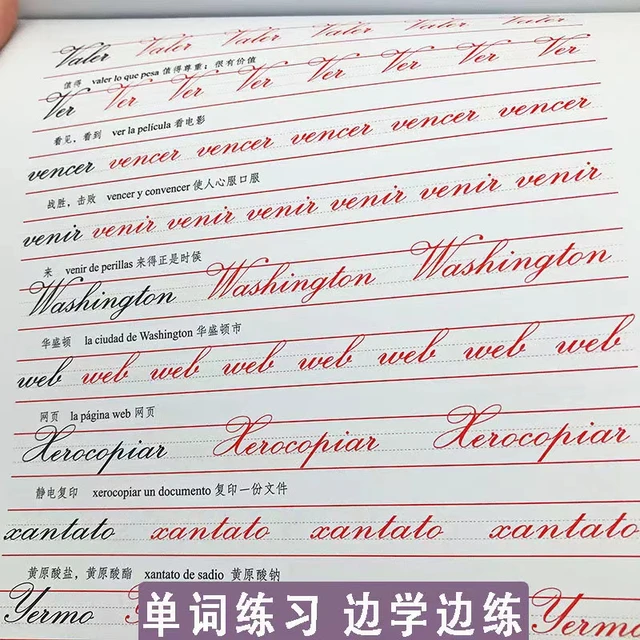 Valer Valer Valer Valer Valer Valer
值得 valer lo que pesa 值得尊重；很有价值
Ver Ver Ver Ver Ver Ver Ver Ver
看见，看到 ver la película 看电影
vencer vencer vencer vencer vencer vencer
战胜，击败 vencery convencer 使人心服口服
venir venir venir venir venir venir venir
来 venir de perillas 来得正是时候
Washington Washington Washington
华盛顿 la ciudad de Washington 华盛顿市
web web web web web web web web
网页 la página web 网页
Xerocopiar Xerocopiar Xerocopiar
静电复印 xerocopiar un documento 复印一份文件
xantato xantato xantato xantato
黄原酸盐，黄原酸酯 xantato de sadio 黄原酸钠
Yermo Yermo
单词练习 边学边练